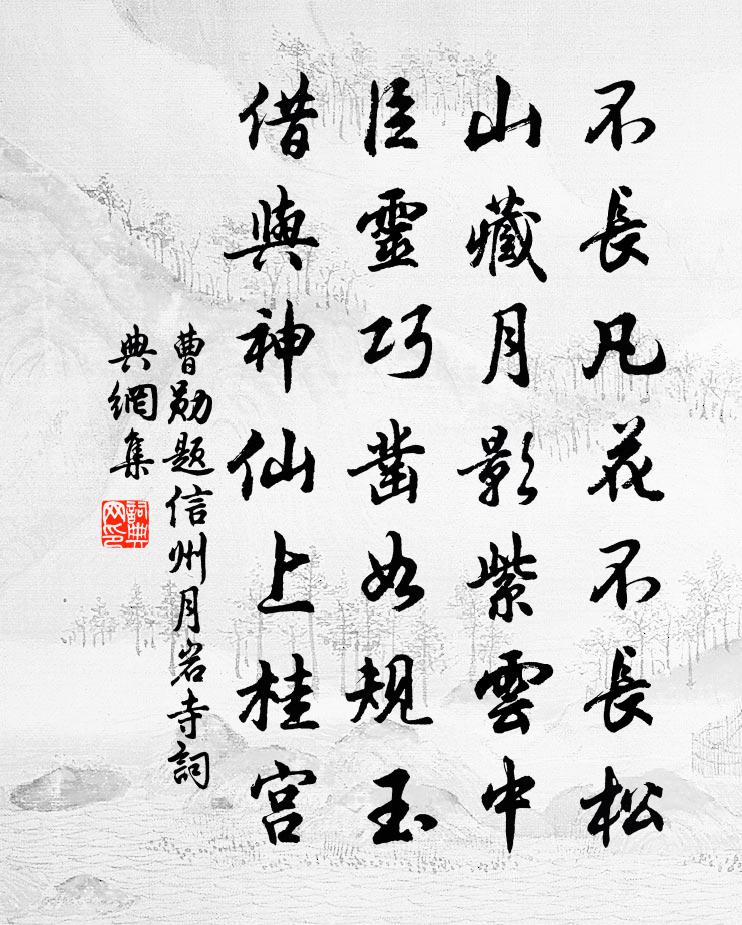 不長凡花不長松
山藏月影紫雲中
巨靈巧鑿如規玉
借與神仙上桂宮
曹勛題信州月岩寺詞
典網集
詞典網印